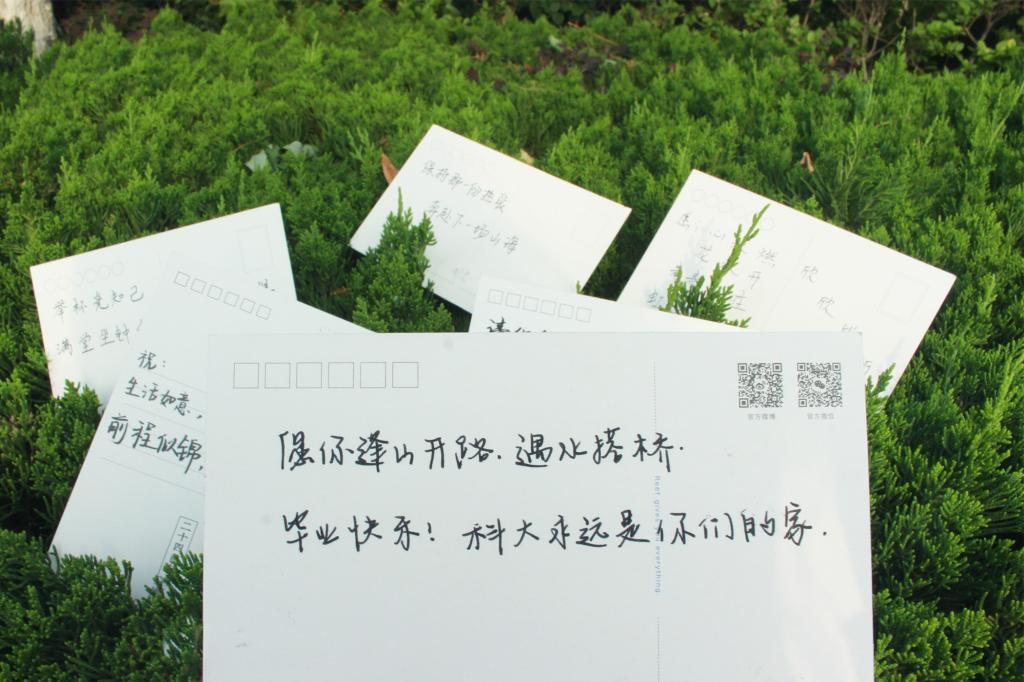 保持那一份热爱
奔赴下一场山海
举杯先知己
满堂坐钟
祝：
生活如意，
前程似锦，
二十四
燃
欣
欣
开
官方微博
官方微信
愿你逢山开路.遇水搭桥.
毕业快乐！科大永远是你们的家.
everything